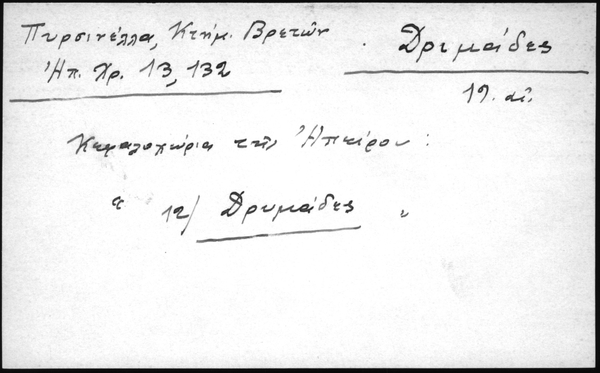 Πυρσινέλλα, Κτήμ. Βρετῶν
Ἠπ. Χρ. 13, 132
Δριμάδες
19. αἰ.
Κεφαλοχώρια τῆς Ἠπείρου :
" 12/ Δρυμάδες "